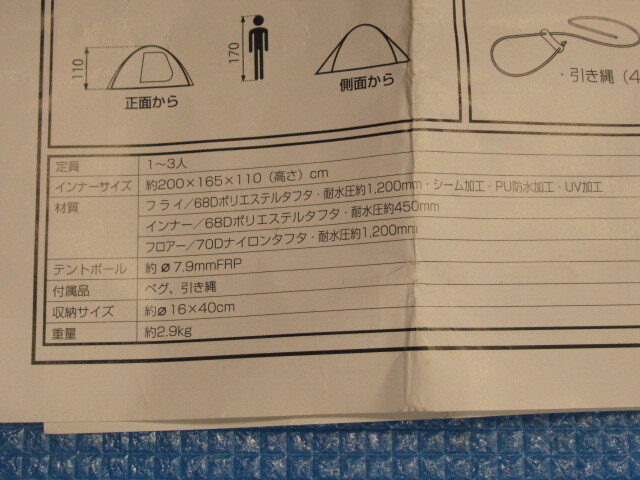 110
正面から
170
側面から
・引き縄（4
定員 1～3人
インナーサイズ 約200×165×110（高さ）cm
材質 フライ／68Dポリエステルタフタ・耐水圧約1,200mm・シーム加工・PU防水加工・UV加工
インナー／68Dポリエステルタフタ・耐水圧約450mm
フロアー／70Dナイロンタフタ・耐水圧約1,200mm
テントポール 約ø7.9mmFRP
付属品 ペグ、引き縄
収納サイズ 約ø16×40cm
重量 約2.9kg